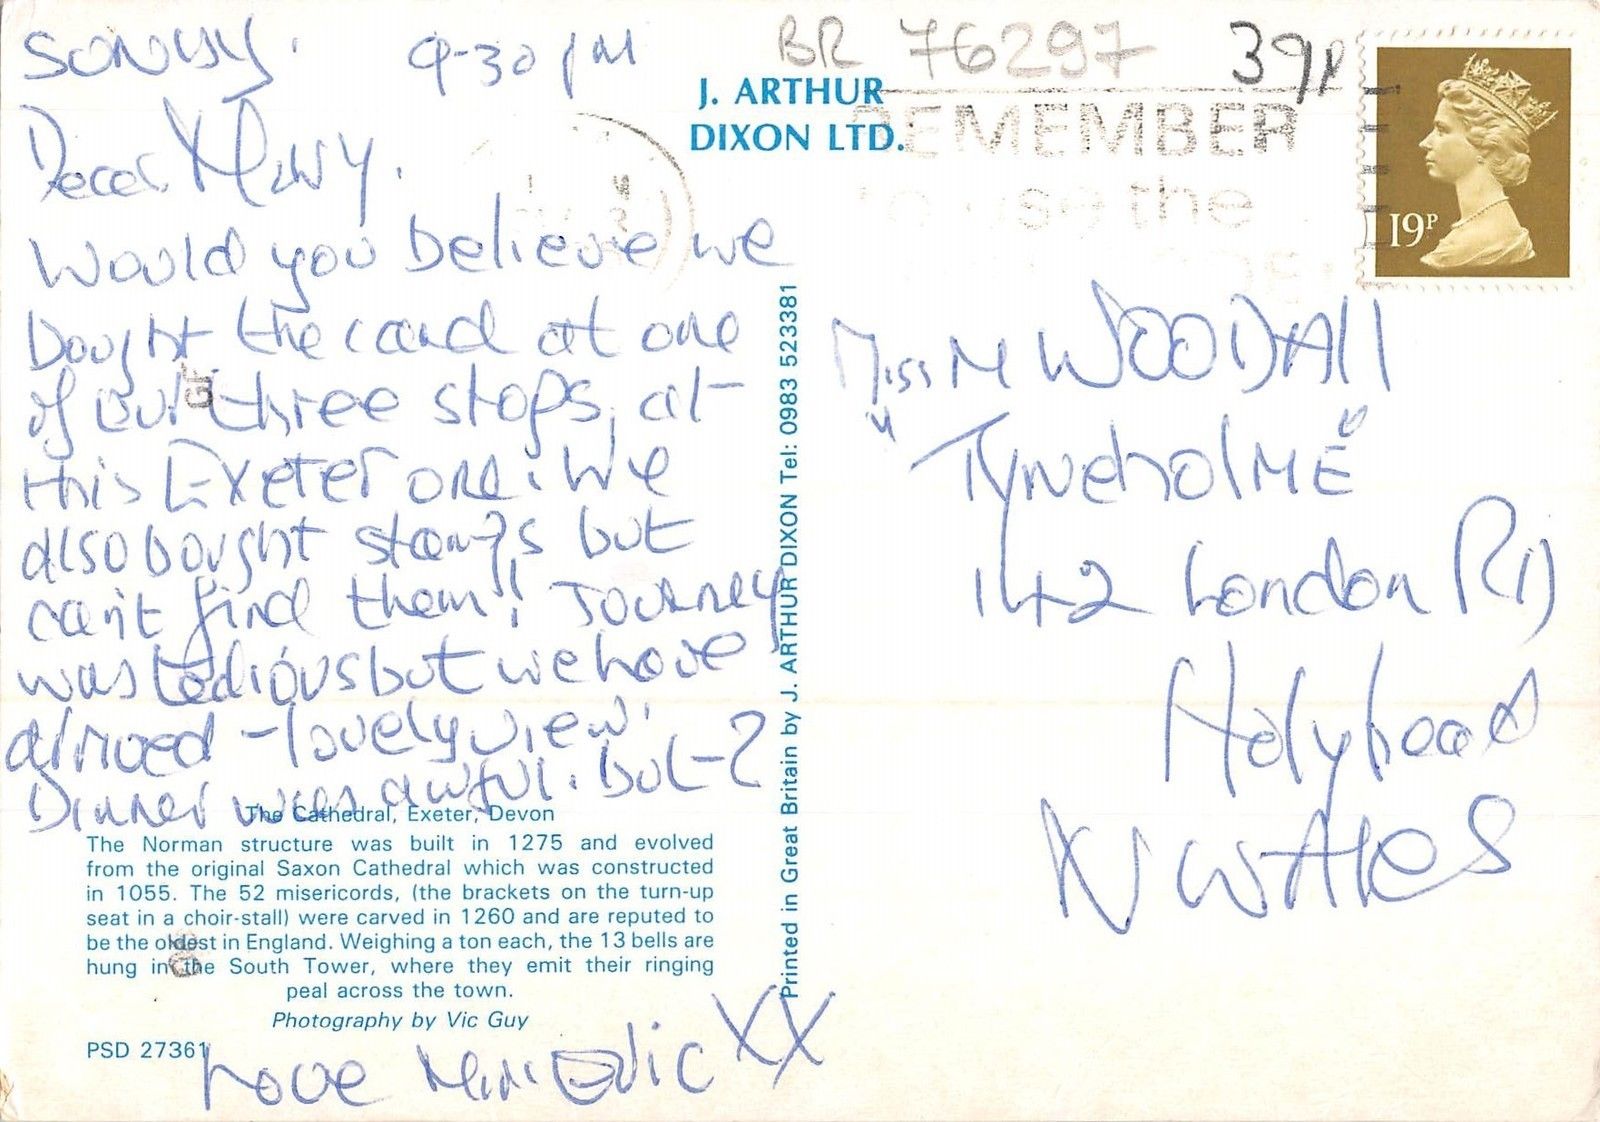 SONDAY. 9-30 PM
Dear Mary.
Would you believe we
bought the card at one
of our three stops, at
this Exeter one. We
also bought stamps but
can't find them!! Journey
was tedious but we have
arrived - lovely view.
Dinner was awful. But-?
The Cathedral, Exeter, Devon
The Norman structure was built in 1275 and evolved
from the original Saxon Cathedral which was constructed
in 1055. The 52 misericords, (the brackets on the turn-up
seat in a choir-stall) were carved in 1260 and are reputed to
be the oldest in England. Weighing a ton each, the 13 bells are
hung in the South Tower, where they emit their ringing
peal across the town.
Photography by Vic Guy
PSD 27361
Love Eric XX
J. ARTHUR
DIXON LTD.
Printed in Great Britain by J. ARTHUR DIXON Tel: 0983 523381
BR 76297 39p
REMEMBER
to use the
19P
Miss M WOODAll
"TyneholME"
142 London RD
Holyhead
N WAleS